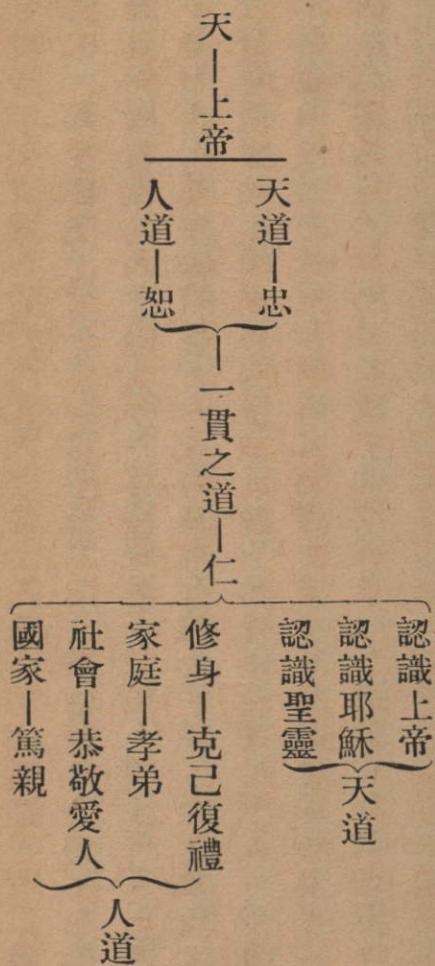 天—上帝
天道—忠
人道—恕
一貫之道—仁
認識上帝
認識耶穌
認識聖靈
天道
修身—克己復禮
家庭—孝弟
社會—恭敬愛人
國家—篤親
人道